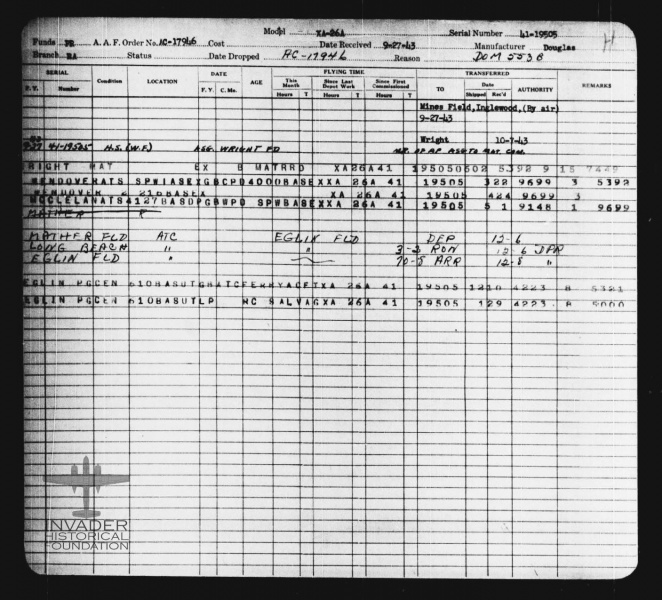 Model XA-26A Serial Number 41-19505 H
Funds PR A. A. F. Order No. AC-17946 Cost Date Received 9-27-43 Manufacturer Douglas
Branch RA Status Date Dropped AC-17946 Reason DOM 5538
SERIAL Condition LOCATION DATE AGE FLYING TIME TRANSFERRED REMARKS
This Month Since Last Depot Work Since First Commissioned TO Date AUTHORITY
F. Y. Number F. Y. C. Mo. Hours T Hours T Hours T Shipped Rec'd
Mines Field, Inglewood, (By air)
9-27-43
Wright 10-7-43
9-27 41-19505 H.S. (W.F.) ASG. WRIGHT FD
RIGHT MAT EX B MATRRD XA26A41 195050502 5392 9 15 7449
WENDOVERATS SPWIASEXGBCPD4000BASEXXA 26A 41 19505 322 9699 3 5392
WENDOVER 216BASEX XA 26A 41 19505 424 9699 3
MCCLELANATS4127BASDPGBWPD SPWBASEXXA 26A 41 19505 5 1 9148 1 9699
MATHER
MATHER FLD ATC EGLIN FLD DEP 12-6
LONG BEACH " " 3-2 RON 12-6 DPR
EGLIN FLD " 70-5 ARR 12-8 "
EGLIN PGCEN 610BASUTGHATCFERRYACFTXA 26A 41 19505 1210 4223 8 5321
EGLIN PGCEN 610BASUTLP RC SALVAGXA 26A 41 19505 129 4223 8 5000
INVADER
HISTORICAL
FOUNDATION